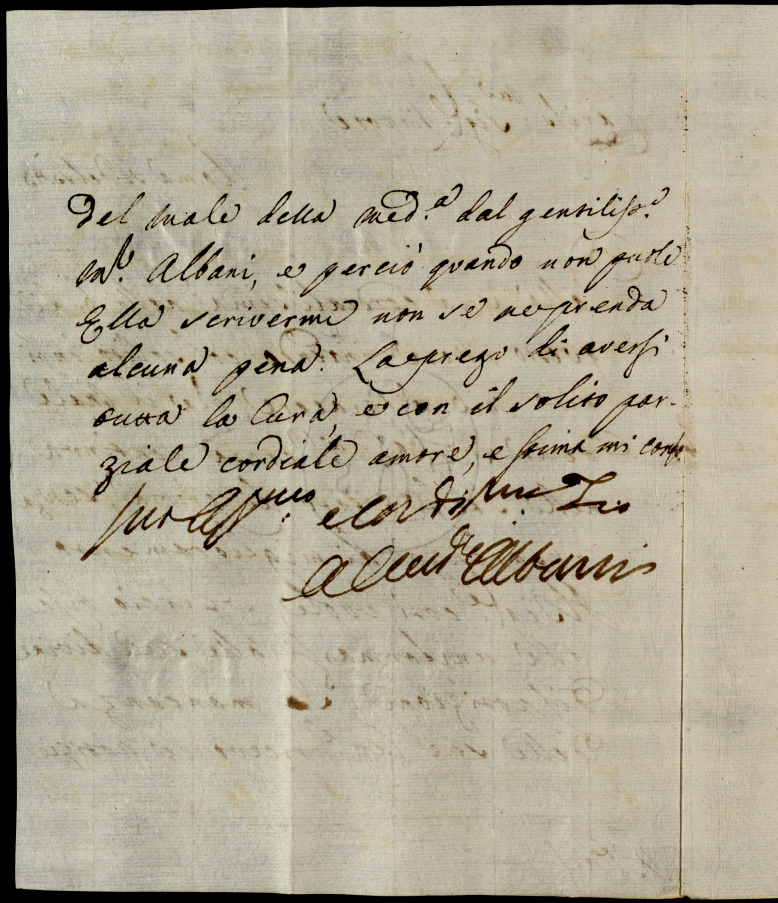 del male della med.ª dal gentiliss.º
M.r Albani, e perciò quando non puole
Ella scrivermi non se ne prenda
alcuna pena. La prego di aversi
tutta la cura, e con il solito par-
ziale cordiale amore, e stima mi conf.
suo Aff.mo e Cord.mo Zio
A Card.e Albani